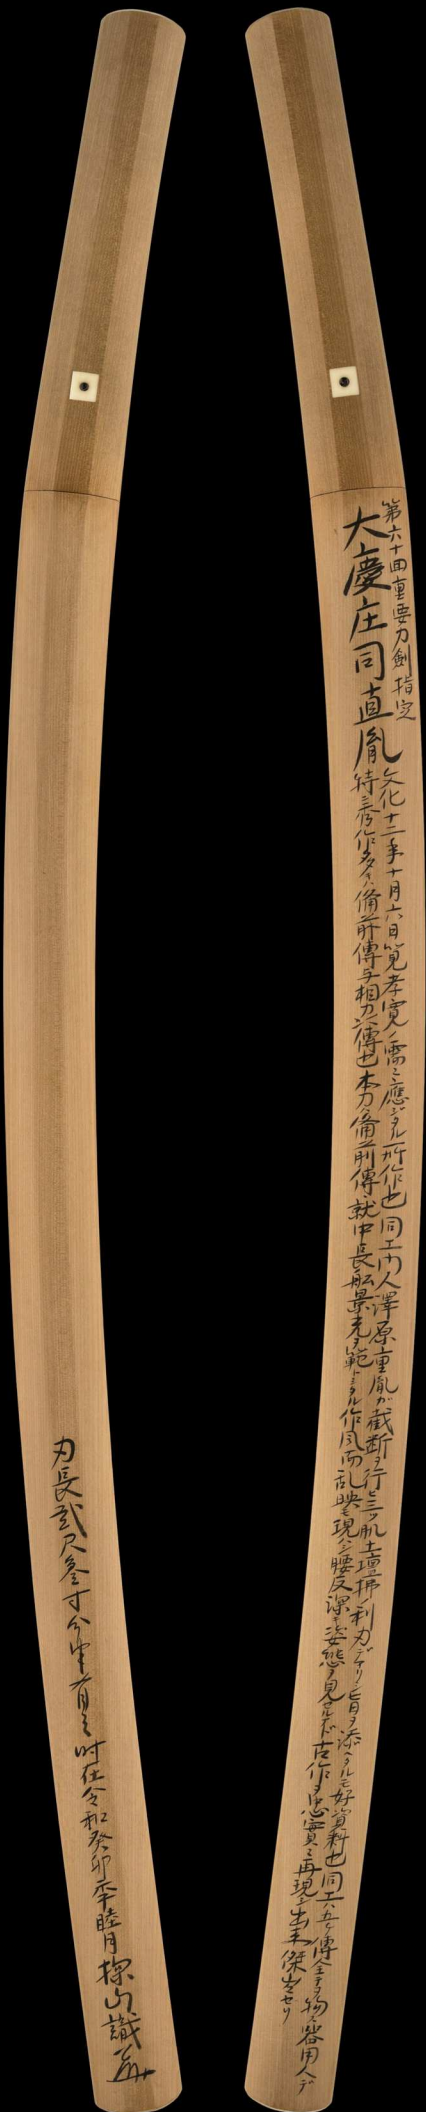 第六十回重要刀剣指定
大慶庄司直胤
文化十二年十月六日筧孝寛ノ需ニ應ジタル所作也同工門人澤原重胤ガ截断ヲ行ヒ三ツ胴土壇拂ノ利刃デアリシ旨ヲ添ヘタルモ好資料也同工ハ五ヶ傳全テヲ物ス器用人デ
特ニ秀作多キハ備前傳与相州傳也本刀ハ備前傳就中長船景光ヲ範トシタル作風而乱映モ現ハシ腰反深キ姿態ヲ見セルナド古作ヲ忠實ニ再現シ出来傑出セリ
刃長貳尺参寸分半有之
時在令和癸卯季睦月探山識